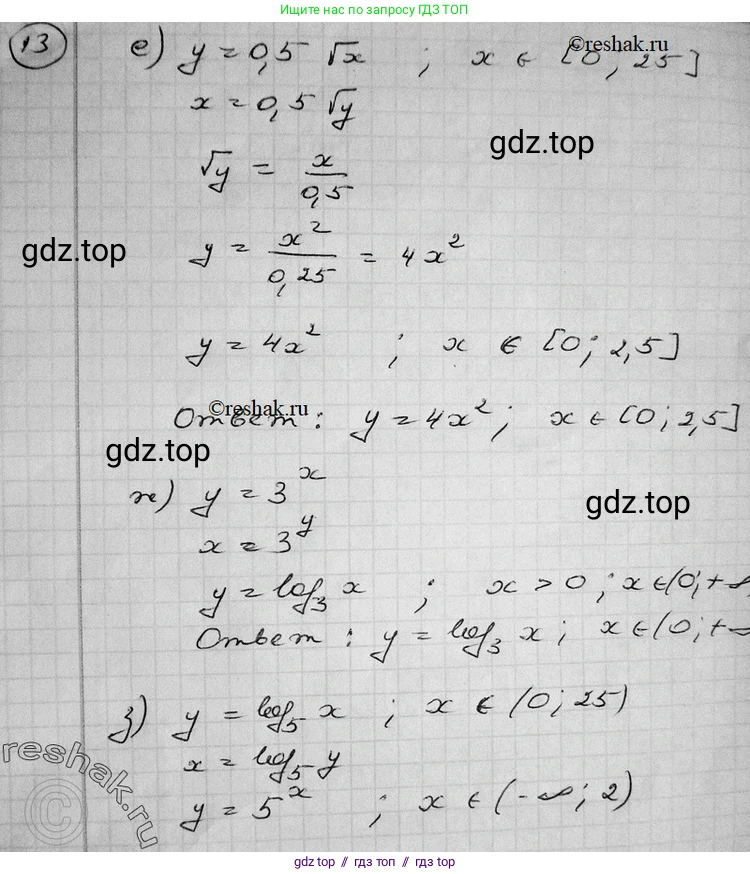 Ищите нас по запросу ГДЗ ТОП
13 е) y = 0,5 √x ; x ∈ [0 ; 25]
©reshak.ru
x = 0,5 √y
gdz.top
√y = x/0,5
gdz.top
y = x²/0,25 = 4x²
y = 4x² ; x ∈ [0 ; 2,5]
©reshak.ru
Ответ : y = 4x² ; x ∈ [0 ; 2,5]
gdz.top
ж) y = 3^x
gdz.top
x = 3^y
y = log₃ x ; x > 0 ; x ∈ (0 ; +∞
Ответ : y = log₃ x ; x ∈ (0 ; +∞
з) y = log₅ x ; x ∈ (0 ; 25)
x = log₅ y
reshak.ru
©
y = 5^x ; x ∈ (-∞ ; 2)
gdz.top // гдз топ // gdz.top